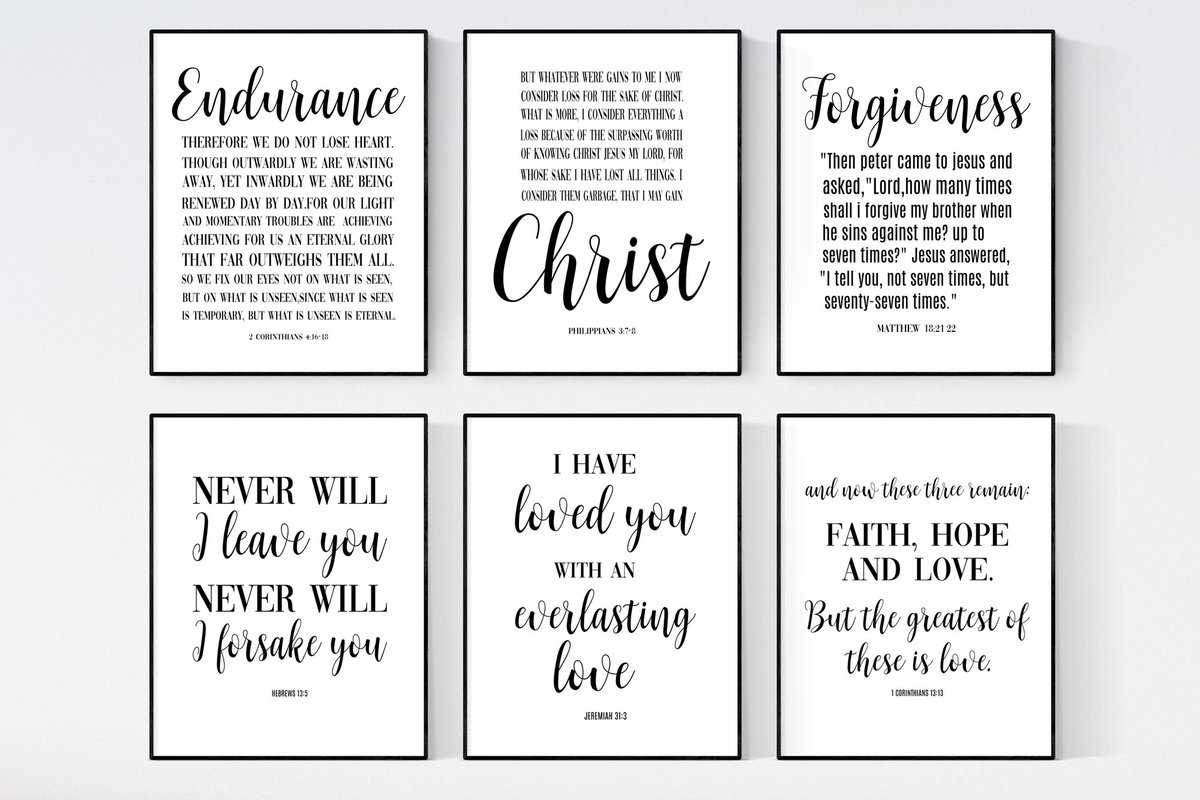 Endurance
THEREFORE WE DO NOT LOSE HEART.
THOUGH OUTWARDLY WE ARE WASTING
AWAY, YET INWARDLY WE ARE BEING
RENEWED DAY BY DAY.FOR OUR LIGHT
AND MOMENTARY TROUBLES ARE ACHIEVING
ACHIEVING FOR US AN ETERNAL GLORY
THAT FAR OUTWEIGHS THEM ALL.
SO WE FIX OUR EYES NOT ON WHAT IS SEEN,
BUT ON WHAT IS UNSEEN,SINCE WHAT IS SEEN
IS TEMPORARY, BUT WHAT IS UNSEEN IS ETERNAL.
2 CORINTHIANS 4:16-18
BUT WHATEVER WERE GAINS TO ME I NOW
CONSIDER LOSS FOR THE SAKE OF CHRIST.
WHAT IS MORE, I CONSIDER EVERYTHING A
LOSS BECAUSE OF THE SURPASSING WORTH
OF KNOWING CHRIST JESUS MY LORD, FOR
WHOSE SAKE I HAVE LOST ALL THINGS. I
CONSIDER THEM GARBAGE, THAT I MAY GAIN
Christ
PHILIPPIANS 3:7-8
Forgiveness
"Then peter came to jesus and
asked,"Lord,how many times
shall i forgive my brother when
he sins against me? up to
seven times?" Jesus answered,
"I tell you, not seven times, but
seventy-seven times."
MATTHEW 18:21 22
NEVER WILL
I leave you
NEVER WILL
I forsake you
HEBREWS 13:5
I HAVE
loved you
WITH AN
everlasting
love
JEREMIAH 31:3
and now these three remain:
FAITH, HOPE
AND LOVE.
But the greatest of
these is love.
1 CORINTHIANS 13:13